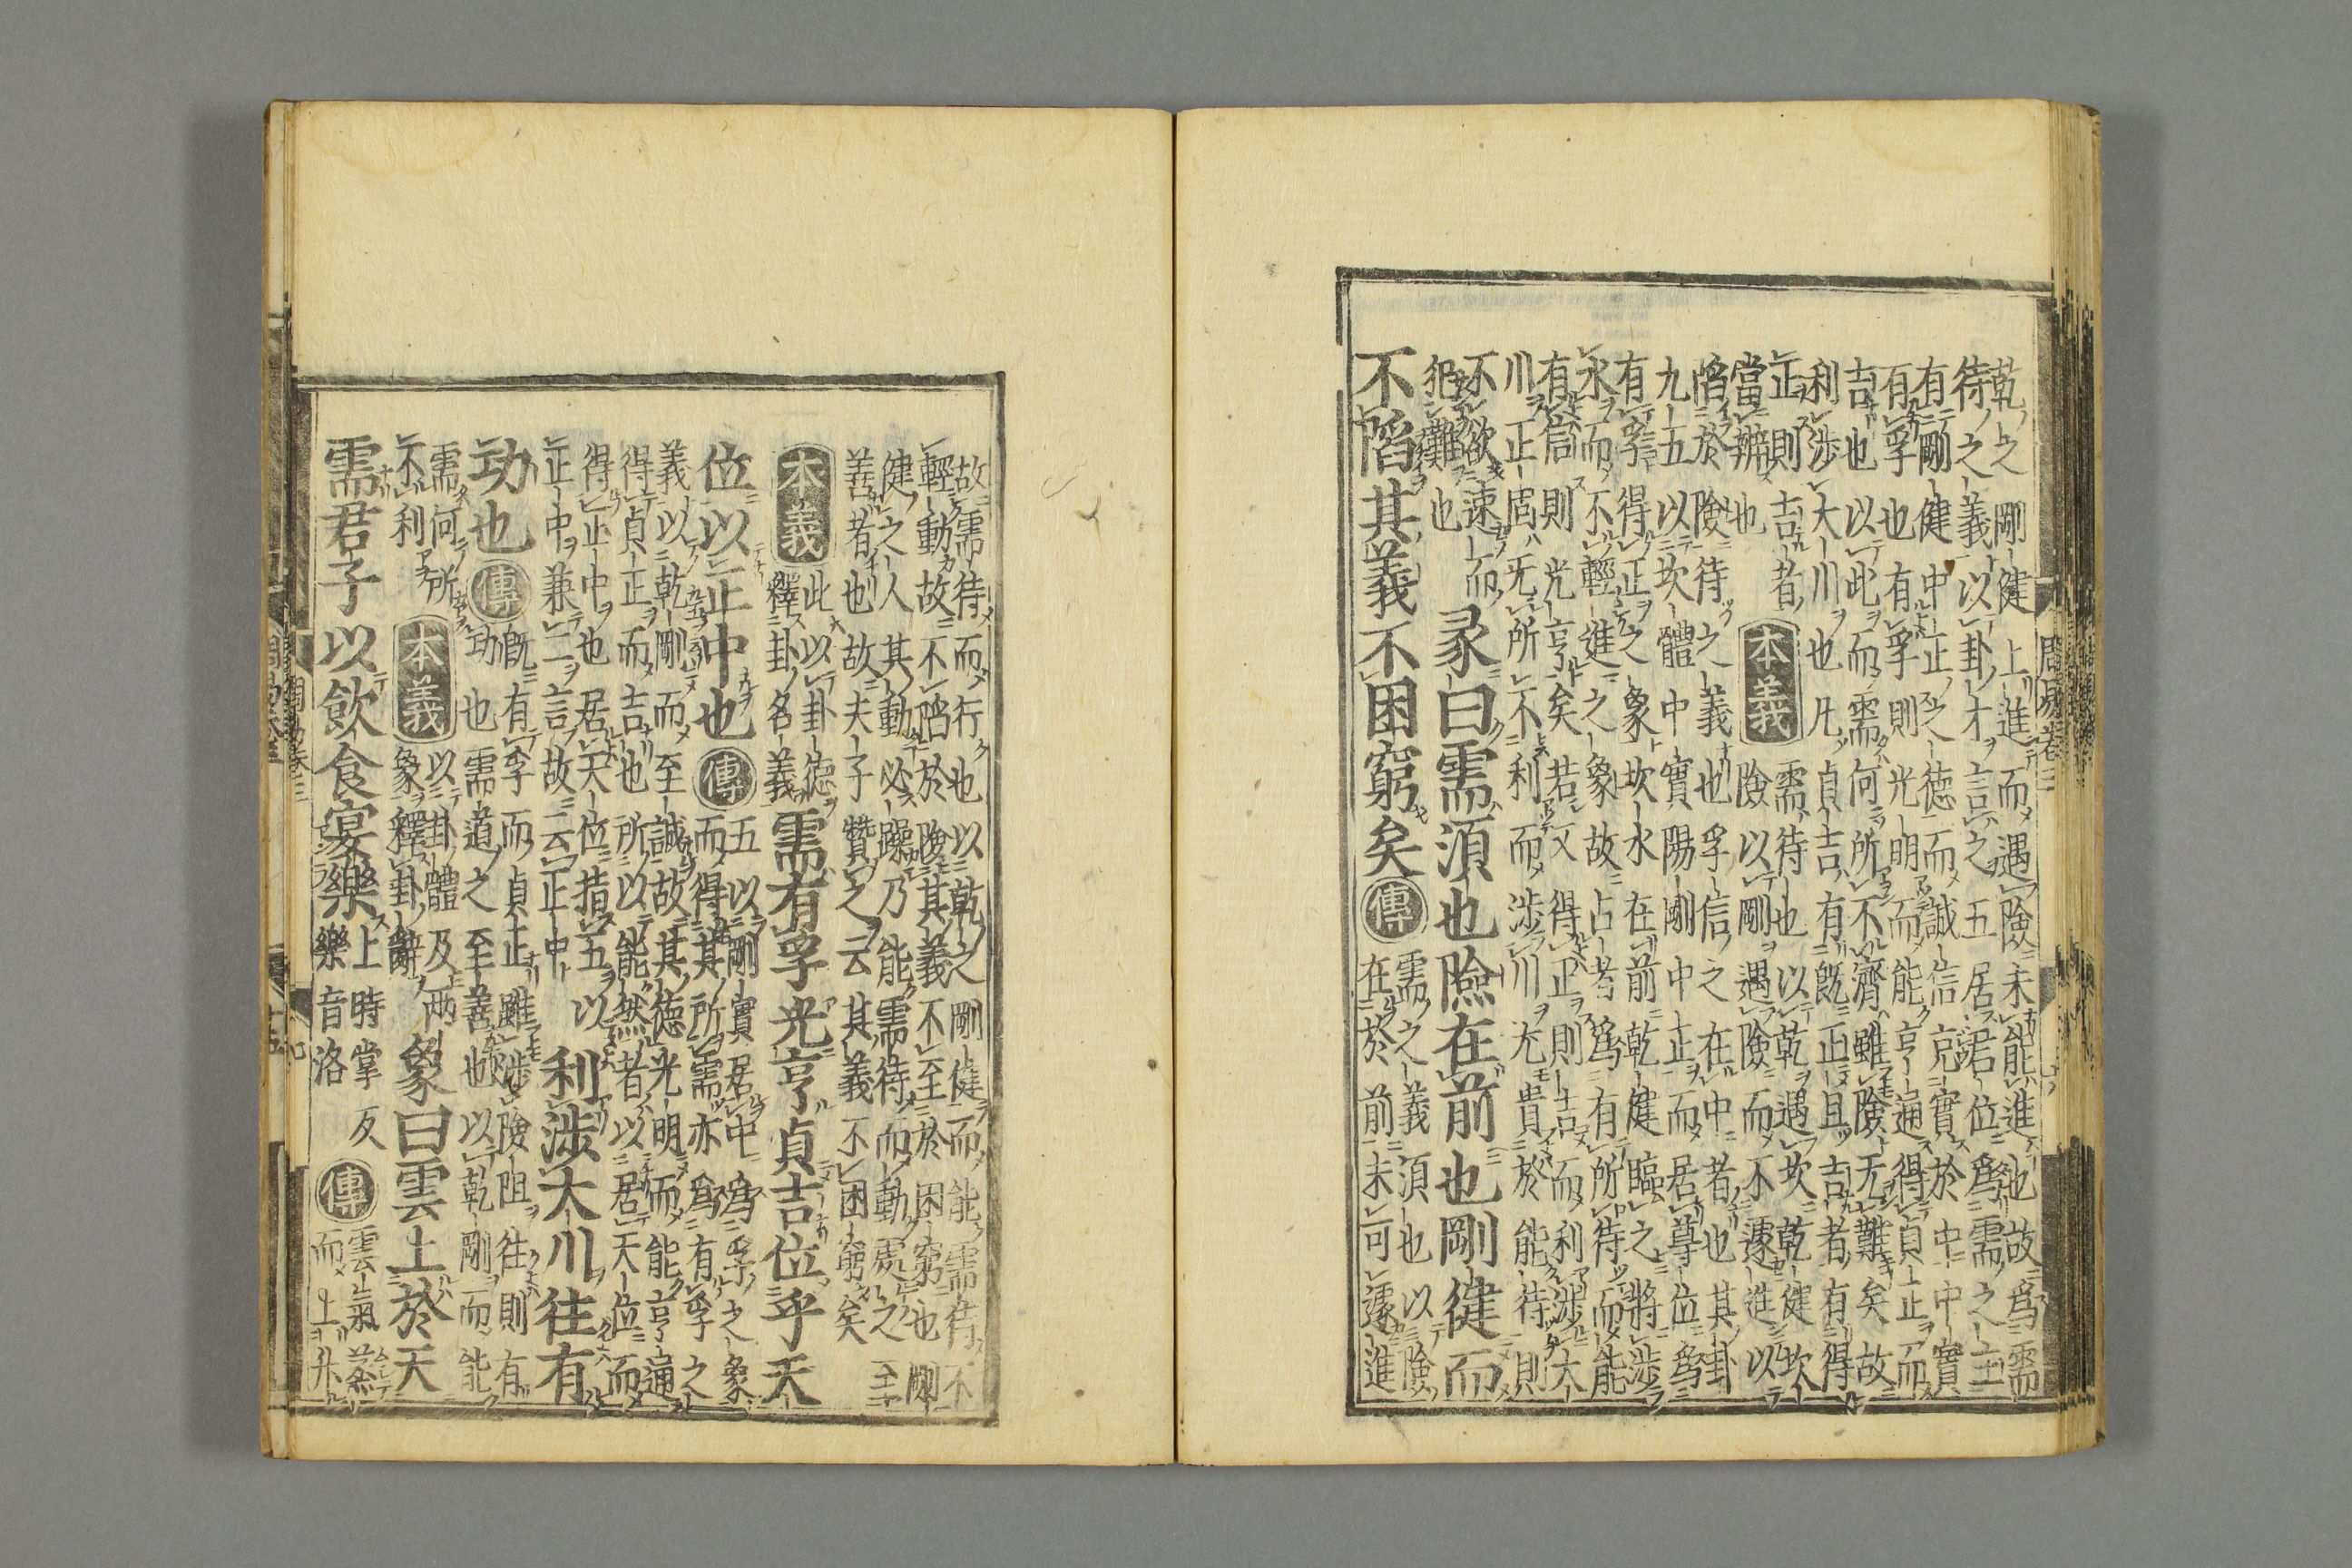 周易卷三
乾之剛健上進而遇險未能進也故爲需
待之義以卦才言之五居君位爲需之主
有剛健中正之德而誠信充實於中中實
有孚也有孚則光明而能亨通得貞正而
吉也以此而需何所不濟雖險无難矣故
利涉大川也凡貞吉有旣正且吉者有得
正則吉者
當辨也
本義
需待也以乾遇坎乾健坎
險以剛遇險而不遽進以
陷於險待之義也孚信之在中者也其卦
九五以坎體中實陽剛中正而居尊位爲
有孚得正之象坎水在前乾健臨之將涉
水而不輕進之象故占者爲有所待而能
有信則光亨矣若又得正則吉而利涉大
川正固无所不利而涉川尤貴於能待則
不欲速而
犯難也
彖曰需須也險在前也剛健而
不陷其義不困窮矣
傳
需之義須也以險
在於前未可遽進
故需待而行也以乾之剛健而能需待不
輕動故不陷於險其義不至於困窮也剛
健之人其動必躁乃能需待而動處之至
善者也故夫子贊之云其義不困窮矣
本義
此以卦德
釋卦名義
需有孚光亨貞吉位乎天
位以正中也
傳
五以剛實居中爲孚之象
而得其所需亦爲有孚之
義以乾剛而至誠故其德光明而能亨通
得貞正而吉也所以能然者以居天位而
得正中也居天位指五以
正中兼二言故云正中
利涉大川往有
功也
傳
旣有孚而貞正雖涉險阻往則有
功也需道之至善也以乾剛而能
需何所
不利
本義
以卦體及兩
象釋卦辭
象曰雲上於天
需君子以飲食宴樂
上時掌反
樂音洛
傳
雲氣蒸
而上升